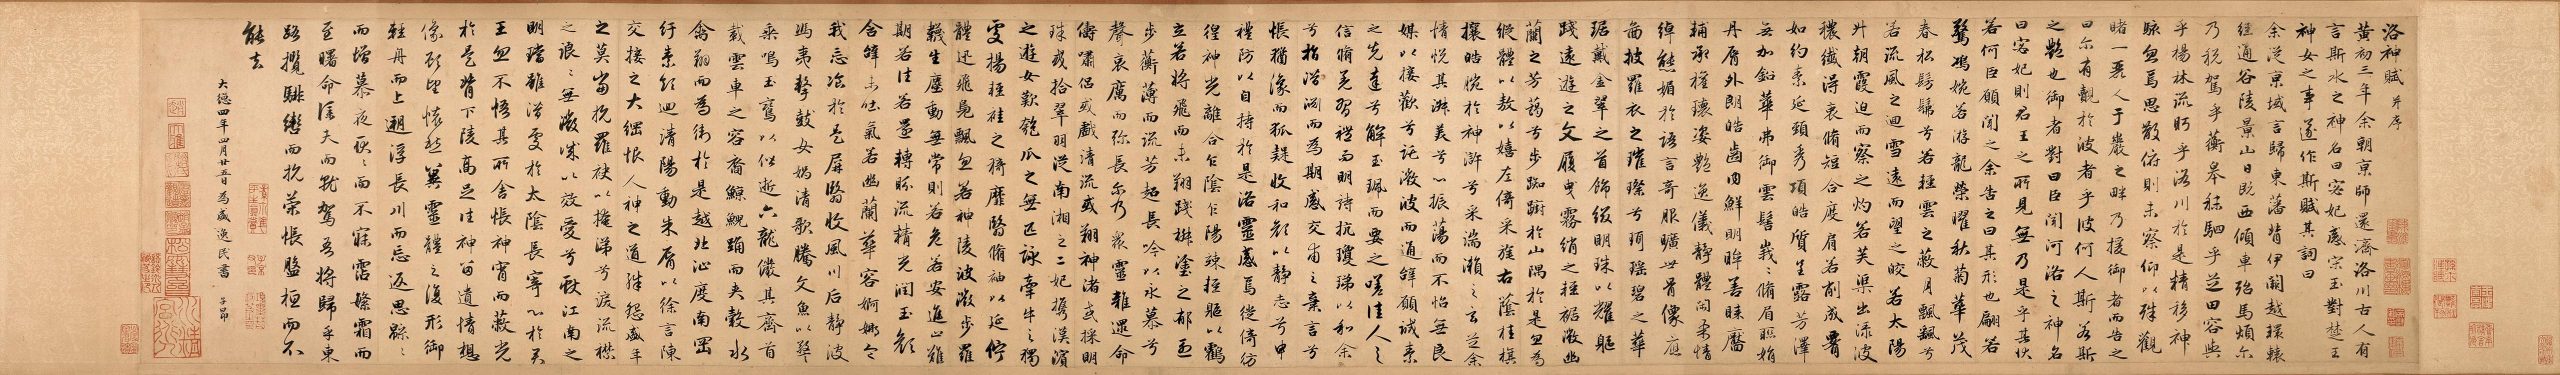 洛神賦 并序
黃初三年余朝京師還濟洛川古人有
言斯水之神名曰宓妃感宋玉對楚王
神女之事遂作斯賦其詞曰
余從京域言歸東藩背伊闕越轘轅
經通谷陵景山日既西傾車殆馬煩爾
乃稅駕乎蘅皋秣駟乎芝田容與
乎楊林流眄乎洛川於是精移神
駭忽焉思散俯則未察仰以殊觀
睹一麗人于巖之畔乃援御者而告之
曰爾有覿於彼者乎彼何人斯若斯
之艷也御者對曰臣聞河洛之神名
曰宓妃則君王之所見無乃是乎其狀
若何臣願聞之余告之曰其形也翩若
驚鴻婉若游龍榮曜秋菊華茂
春松髣髴兮若輕雲之蔽月飄颻兮
若流風之迴雪遠而望之皎若太陽
升朝霞迫而察之灼若芙蕖出淥波
穠纖得衷脩短合度肩若削成腰
如約素延頸秀項皓質呈露芳澤
無加鉛華弗御雲髻峩〻脩眉聯娟
丹脣外朗皓齒內鮮明眸善睞靨
輔承權瓌姿艷逸儀靜體閑柔情
綽態媚於語言奇服曠世骨像應
圖披羅衣之璀璨兮珥瑤碧之華
琚戴金翠之首飾綴明珠以耀軀
踐遠遊之文履曳霧綃之輕裾微幽
蘭之芳藹兮步踟躕於山隅於是忽焉
縱體以敖以嬉左倚采旄右蔭桂旗
攘皓腕於神滸兮采湍瀨之玄芝余
情悅其淑美兮心振蕩而不怡無良
媒以接歡兮託微波而通辭願誠素
之先達兮解玉珮而要之嗟佳人之
信脩羌習禮而明詩抗瓊珶以和余
兮指潛淵而為期感交甫之棄言兮
悵猶豫而狐疑收和顏以靜志兮申
禮防以自持於是洛靈感焉徙倚彷
徨神光離合乍陰乍陽竦輕軀以鶴
立若將飛而未翔踐椒塗之郁烈
步蘅薄而流芳超長吟以永慕兮
聲哀厲而彌長爾乃眾靈雜遝命
儔嘯侶或戲清流或翔神渚或採明
珠或拾翠羽從南湘之二妃攜漢濱
之遊女歎匏瓜之無匹詠牽牛之獨
處揚輕袿之猗靡翳脩袖以延佇
體迅飛鳧飄忽若神陵波微步羅
韈生塵動無常則若危若安進止難
期若往若還轉眄流精光潤玉顏
含辭未吐氣若幽蘭華容婀娜令
我忘飡於是屏翳收風川后靜波
馮夷擊鼓女媧清歌騰文魚以警
乘鳴玉鸞以偕逝六龍儼其齊首
載雲車之容裔鯨鯢踊而夾轂水
禽翔而為衛於是越北沚度南岡
紆素領迴清陽動朱脣以徐言陳
交接之大綱恨人神之道殊怨盛年
之莫當抗羅袂以掩涕兮淚流襟
之浪〻無微誠以效愛兮獻江南之
明璫雖潛處於太陰長寄心於君
王忽不悟其所舍悵神宵而蔽光
於是背下陵高足往神留遺情想
像顧望懷愁冀靈體之復形御
輕舟而上遡浮長川而忘返思緜〻
而增慕夜耿〻而不寐霑繁霜而
至曙命僕夫而就駕吾將歸乎東
路攬騑轡而抗策悵盤桓而不
能去
大德四年四月廿五日為盛逸民書 子昂